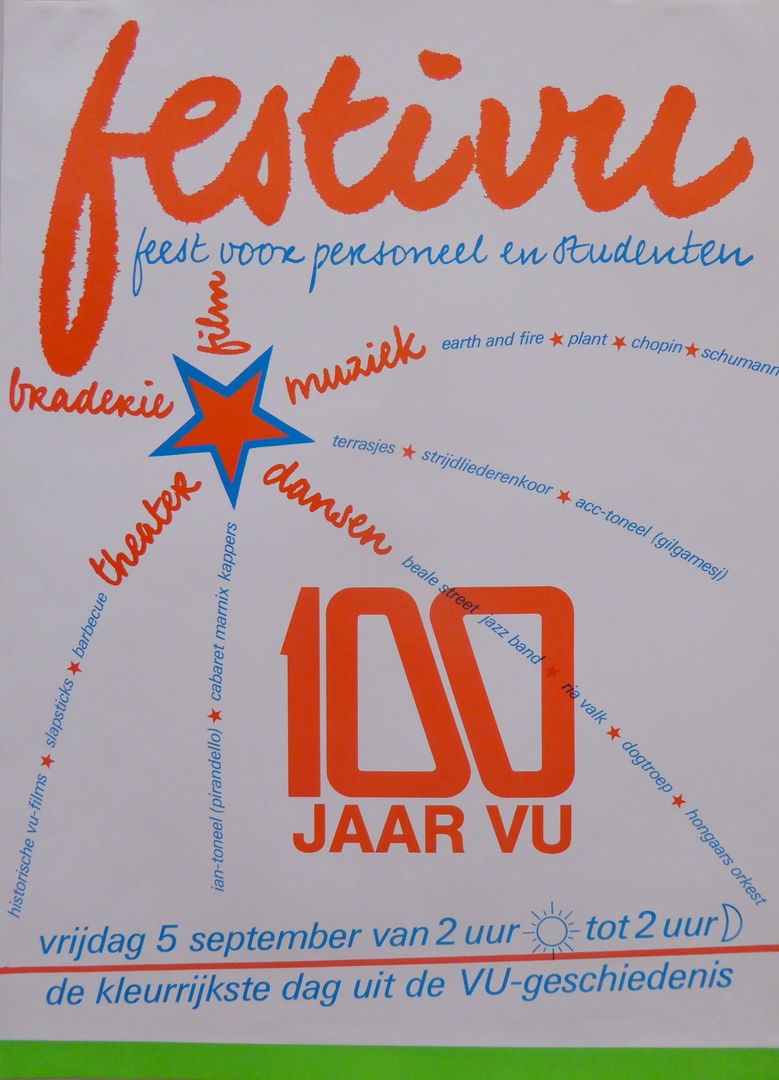 festivu
feest voor personeel en studenten
film
muziek
earth and fire ★ plant ★ chopin ★ schumann
braderie
terrasjes ★ strijdliederenkoor ★ acc-toneel (gilgamesj)
dansen
beale street jazz band ★ ria valk ★ dogtroep ★ hongaars orkest
theater
historische vu-films ★ slapsticks ★ barbecue
ian-toneel (pirandello) ★ cabaret marnix kappers
100
JAAR VU
vrijdag 5 september van 2 uur tot 2 uur
de kleurrijkste dag uit de VU-geschiedenis